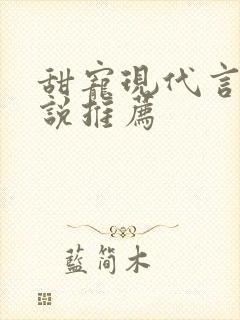 甜寵現代言
說推薦
藍簡木